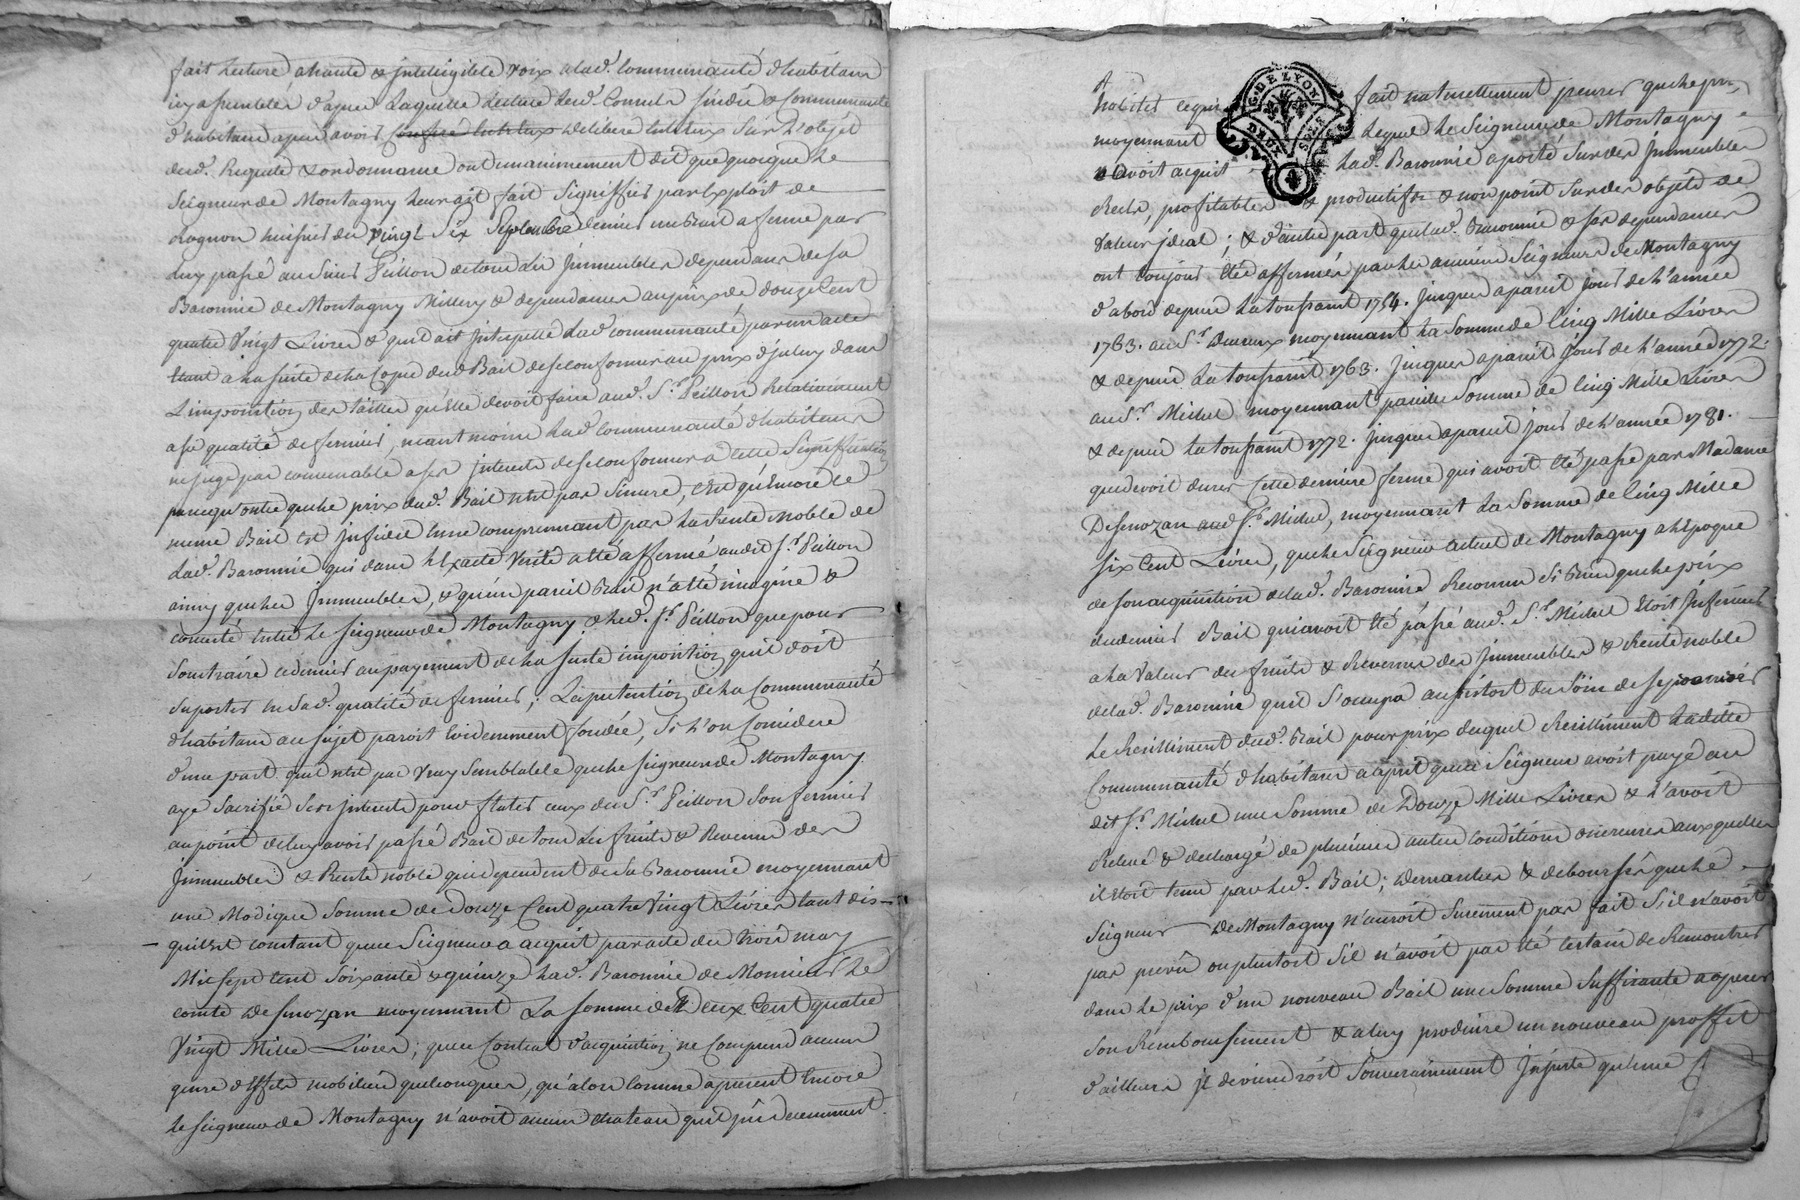 fait lecture a haute & jntelligible voix a lad. Communauté d'habitans
icy assemblés d'apres laquelle lecture led. Consuls sindic & Communauté
d'habitans apres avoir Conferé Entr'eux delibéré Entr'eux Sur L'objet
desd. Requete & ordonnance ont unanimement dit que quoique le
Seigneur de Montagny leur ait fait Signiffier par Exploit de
Rognon huissier du vingt Six Septembre dernier un Bail a ferme par
luy passé au Sieur Peillon de tous les jmmeubles dependans de sa
Baronnie de Montagny Millery & dependances au prix de douze Cent
quatre Vingt Livres & qu'il ait jnterpellé lad. communauté par un acte
Etant a la suite de la Copie dud. Bail de se Conformer au prix d'jceluy dans
L'imposition des tailles qu'Elle devoit faire aud. Sr. Peillon Relativement
a sa qualité de fermier, neantmoins lad. communauté d'habitans
ne juge pas convenable a ses jnterets de se Conformer a cette Signiffication
parcequ'outre que le prix dud. Bail n'est pas Sincere, C'est qu'Encore le
meme Bail est jnfidel En ne comprennant pas la Rente Noble de
lad. Baronnie qui dans l'Exacte Verité a été affermé audit Sr. Peillon
ainsy que les jmmeubles, & qu'un pareil Bail n'a été imaginé &
concerté Entre le seigneur de Montagny & led. Sr. Peillon que pour
Soustraire ce dernier au payement de la juste imposition qu'il doit
Suporter En Sad. qualité de fermier; La pretention de la Communauté
d'habitans au sujet paroit Evidemment fondée, Si l'on Considere
d'une part qu'il n'est pas Vray Semblable que le seigneur de Montagny
aye Sacrifié Ses jnterets pour flater ceux du Sr. Peillon Son fermier
au point de luy avoir passé Bail de tous les fruits & Revenus des
jmmeubles & Rente noble qui dependent de Sa Baronnie moyennant
une Modique Somme de Douze Cent quatre Vingt Livres tant dis-
qu'il est constant que ce Seigneur a acquit par acte du trois may
Mil Sept Cent Soixante & quinze lad. Baronnie de Monsieur le
comte De Senozan moyennant La somme de Deux Cent quatre
Vingt Mille Livres; que ce Contrat d'acquisition ne Comprend aucun
genre d'Effets mobiliers quelconques, qu'alors Comme a present Encore
le seigneur de Montagny n'avoit aucun chateau qu'il put decemment
habiter ce qui fait naturellement penser que le prix
moyennant lequel le Seigneur de Montagny
avoit acquit lad. Baronnie a porté Sur des jmmeubles
Reels, profitables & productifs & non point Sur des objets de
Valeur jdeal; & d'autre part que lad. Baronnie & ses dependances
ont toujours Eté affermées par les anciens Seigneurs de Montagny
d'abord depuis la toussaint 1754. jusques a pareil jour de l'année
1763. au Sr. moyennant la Somme de Cinq Mille Livres
& depuis la toussaint 1763. jusques a pareil jour de l'année 1772.
au Sr. Michel moyennant pareille Somme de Cinq Mille Livres
& depuis la toussaint 1772. jusques a pareil jour de l'année 1781.
que devoit durer Cette derniere ferme qui avoit Eté passé par Madame
De Senozan aud Sr. Michel, moyennant La Somme de Cinq Mille
Six Cent Livres, que le Seigneur actuel de Montagny a l'Epoque
de son acquisition de lad. Baronnie Reconnu Si bien que le prix
du dernier Bail qui avoit Eté passé aud. Sr. Michel Etoit jnferieur
a la Valeur des fruits & Revenus des jmmeubles & Rente noble
de lad. Baronnie qu'il S'occupa aussitot du Soin de se procurer
Le Resilliment dud. Bail pour prix duquel Resilliment ladite
Communauté d'habitans a apris que ce Seigneur avoit payé au
dit Sr. Michel une Somme de Douze Mille Livres & l'avoit
Relevé & dechargé de plusieurs autres conditions onereuses auxquelles
il Etoit tenu par led. Bail; demarches & deboursés que le
Seigneur De Montagny n'auroit Surement pas fait Si il n'avoit
pas prevu ou plustot S'il n'avoit pas Eté certain de Rencontrer
dans le prix d'un nouveau Bail une Somme Suffisante a operer
Son Remboursement & a luy produire un nouveau proffit
d'ailleurs jl deviendroit Souverainement Injuste qu'une
G. DE LYON
DEUX SOLS
4